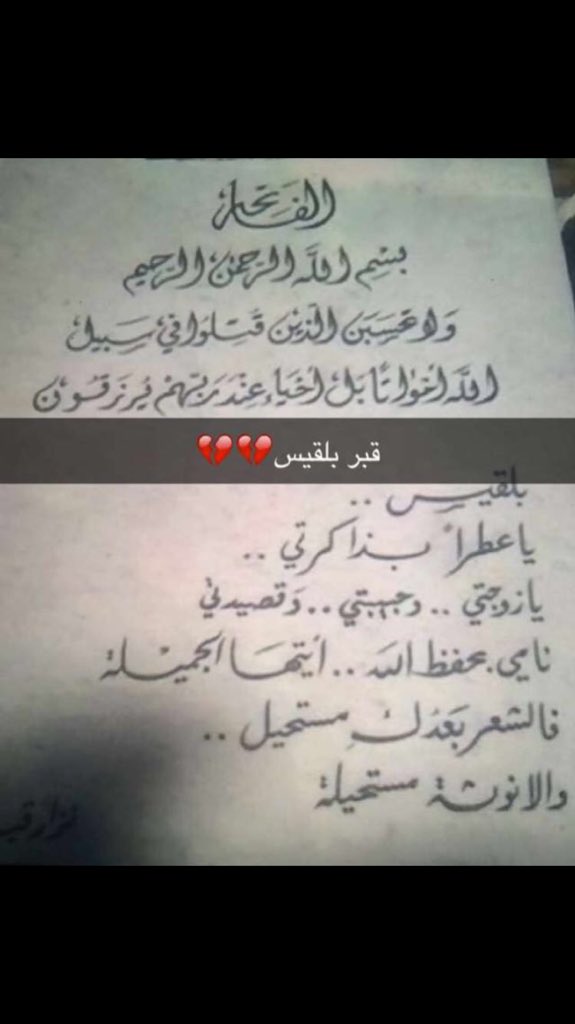 الفاتحة
بسم الله الرحمن الرحيم
ولا تحسبن الذين قتلوا في سبيل
الله أمواتا بل أحياء عند ربهم يرزقون
قبر بلقيس💔💔
بلقيس ..
يا عطراً بذاكرتي ..
يا زوجتي .. وحبيبتي .. وقصيدتي
نامي بحفظ الله .. أيتها الجميلة
فالشعر بعدك مستحيل ..
والانوثة مستحيلة
نزار قب